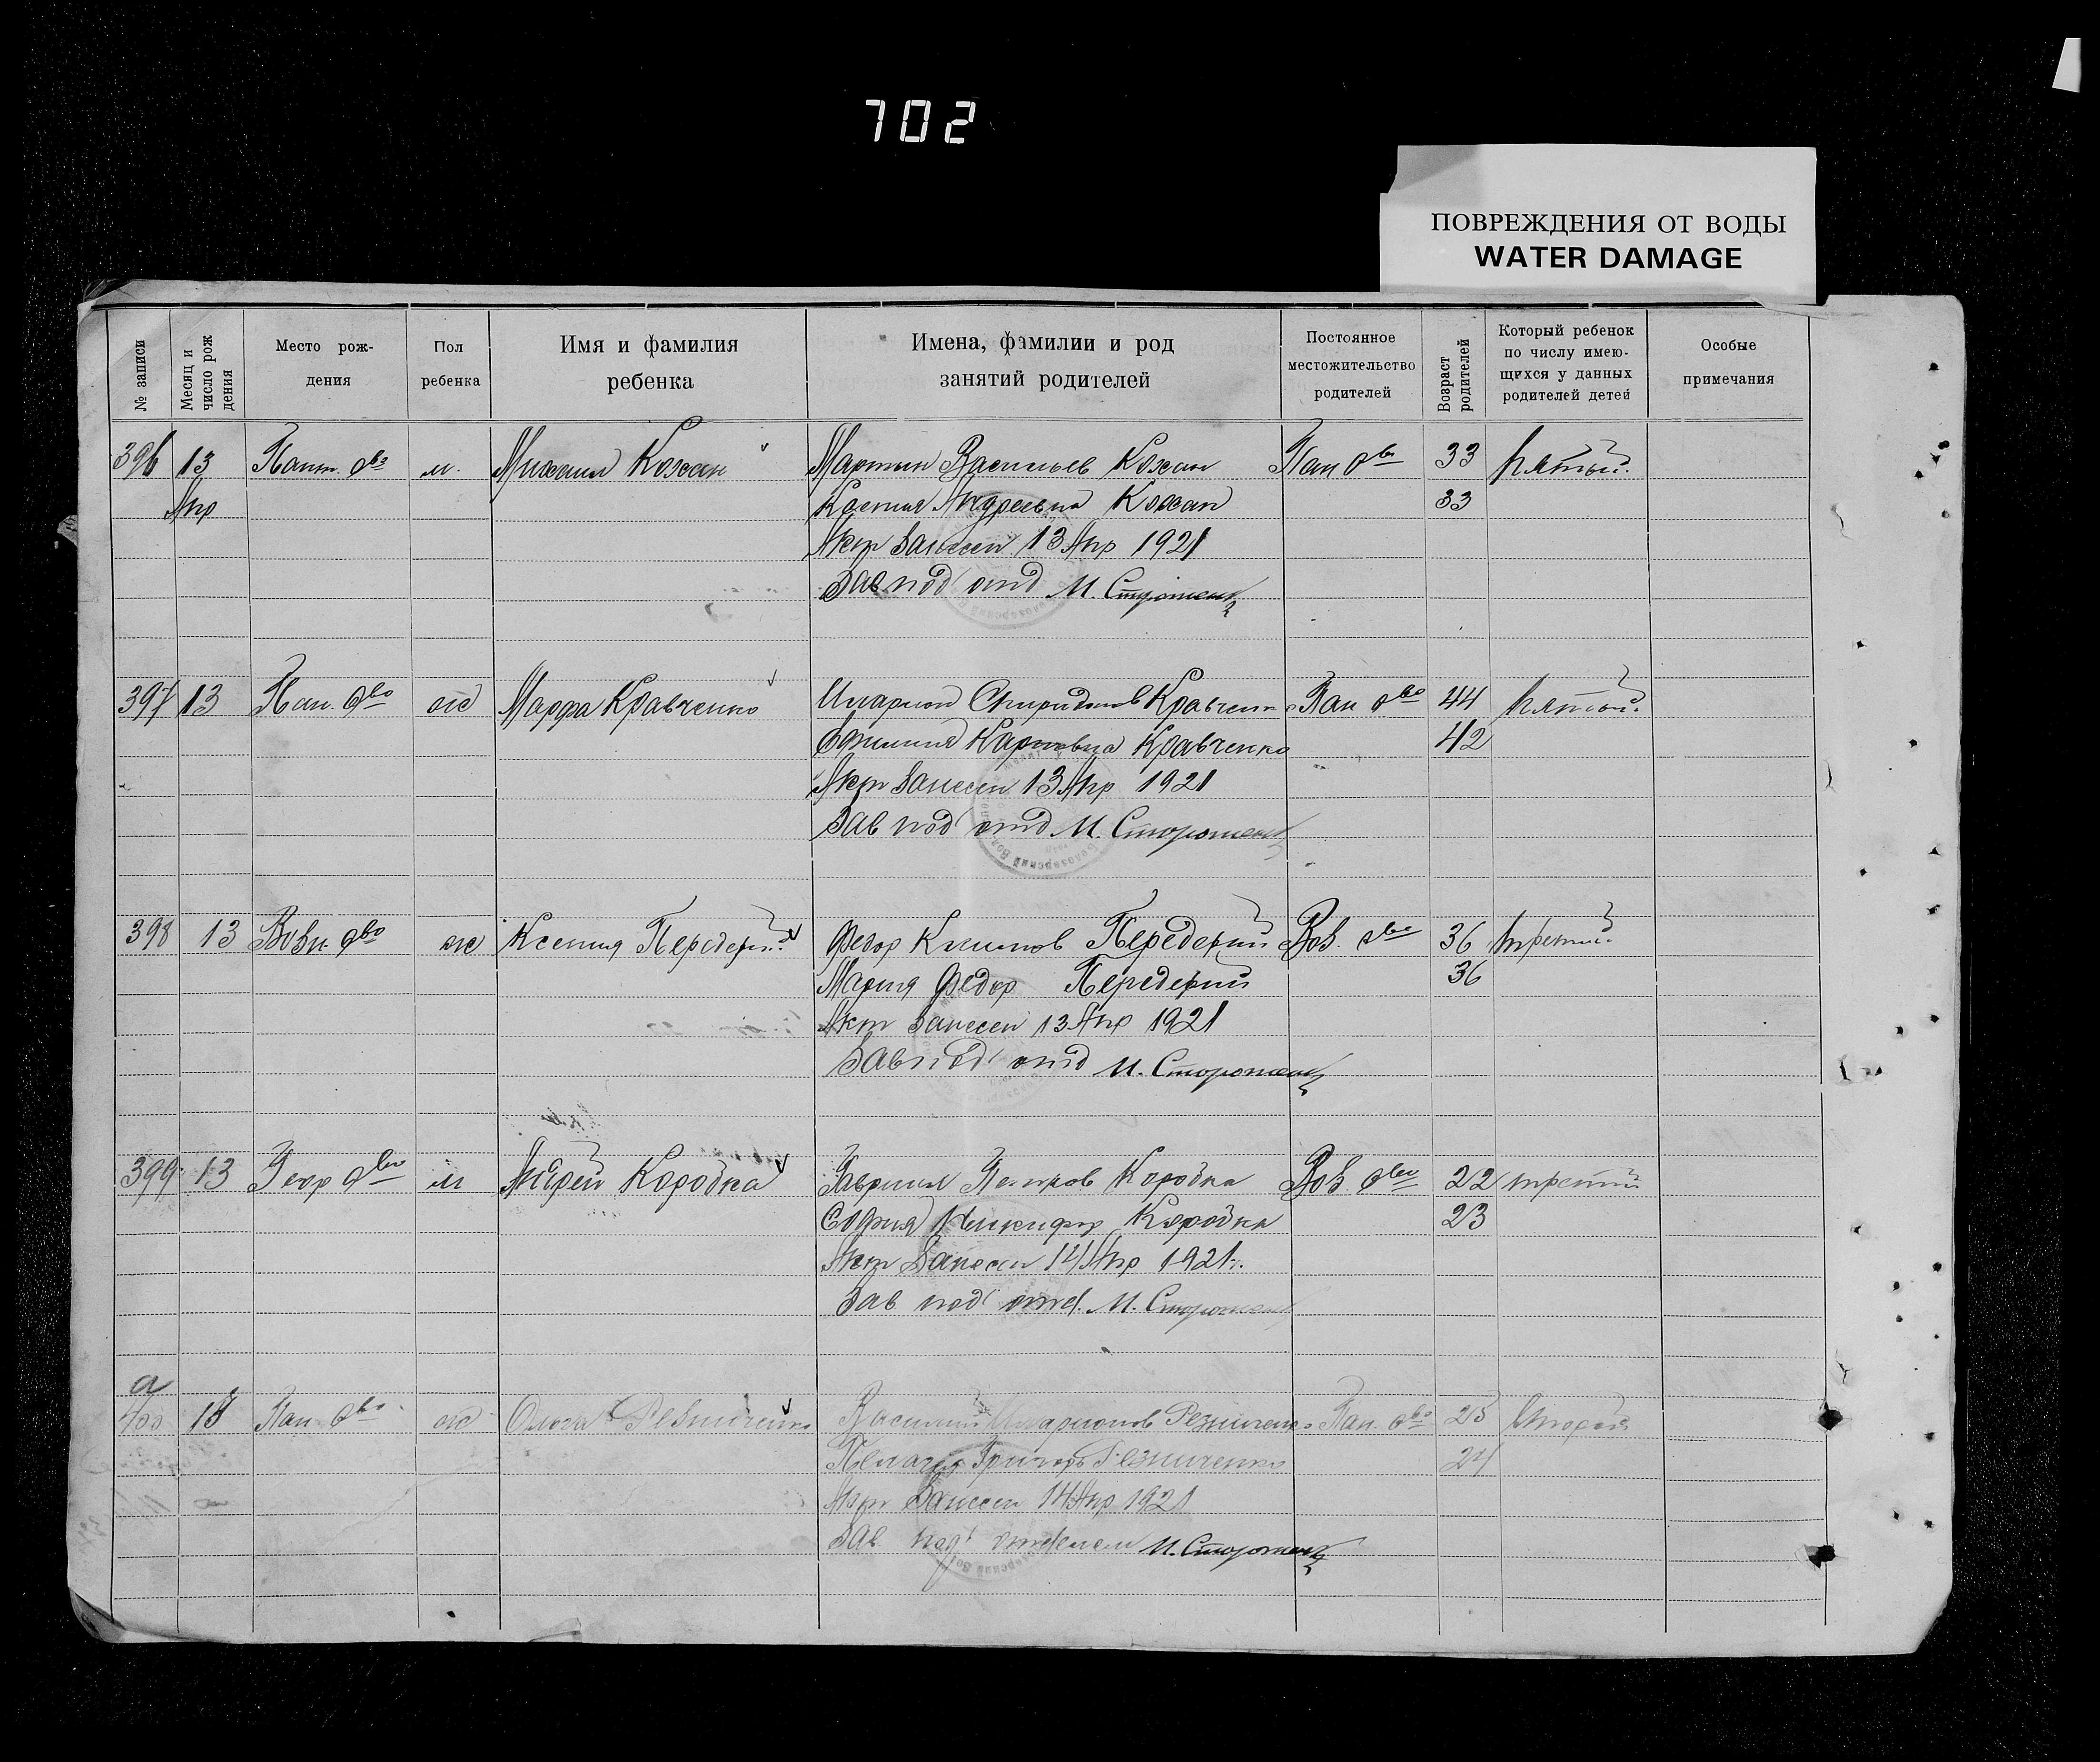 702
ПОВРЕЖДЕНИЯ ОТ ВОДЫ
WATER DAMAGE
№ записи
Месяц и число рож дения
Место рож-
дения
Пол
ребенка
Имя и фамилия
ребенка
Имена, фамилии и род
занятий родителей
Постоянное
местожительство
родителей
Возраст
родителей
Который ребенок
по числу имею-
щихся у данных
родителей детей
Особые
примечания
396 13 Пант. дво м. Михаил Кохан Мартын Васильев Кохан Пан дво 33 пятый.
Апр Ксения Андреевна Кохан 33
Акт Занесен 13 Апр 1921
Зав под отд М. Стороженко
397 13 Пан. дво ж Марфа Кравченко Иларион Спиридонов Кравченко Пан дво 44 пятый.
Карповна Кравченко 42
Акт Занесен 13 Апр 1921
Зав под отд М. Стороженко
398 13 Возн. дво ж Ксения Передерий Федор Климов Передерий Воз. дво 36 третий.
Мария Федор Передерий 36
Акт Занесен 13 Апр 1921
Зав под отд М. Стороженко
399 13 Геор дво м Андрей Коробка Гавриил Петров Коробка Воз. дво 22 третий
София Никифор Коробка 23
Акт Занесен 14 Апр 1921.
Зав под отд. М. Стороженко
а
400 13 Пан дво ж Ольга Резниченко Василий Иларионов Резниченко Пан. дво 25 Второй
Пелагея Григорь Резниченко 24
Акт Занесен 14 Апр 1921
Зав под отделом М. Стороженко